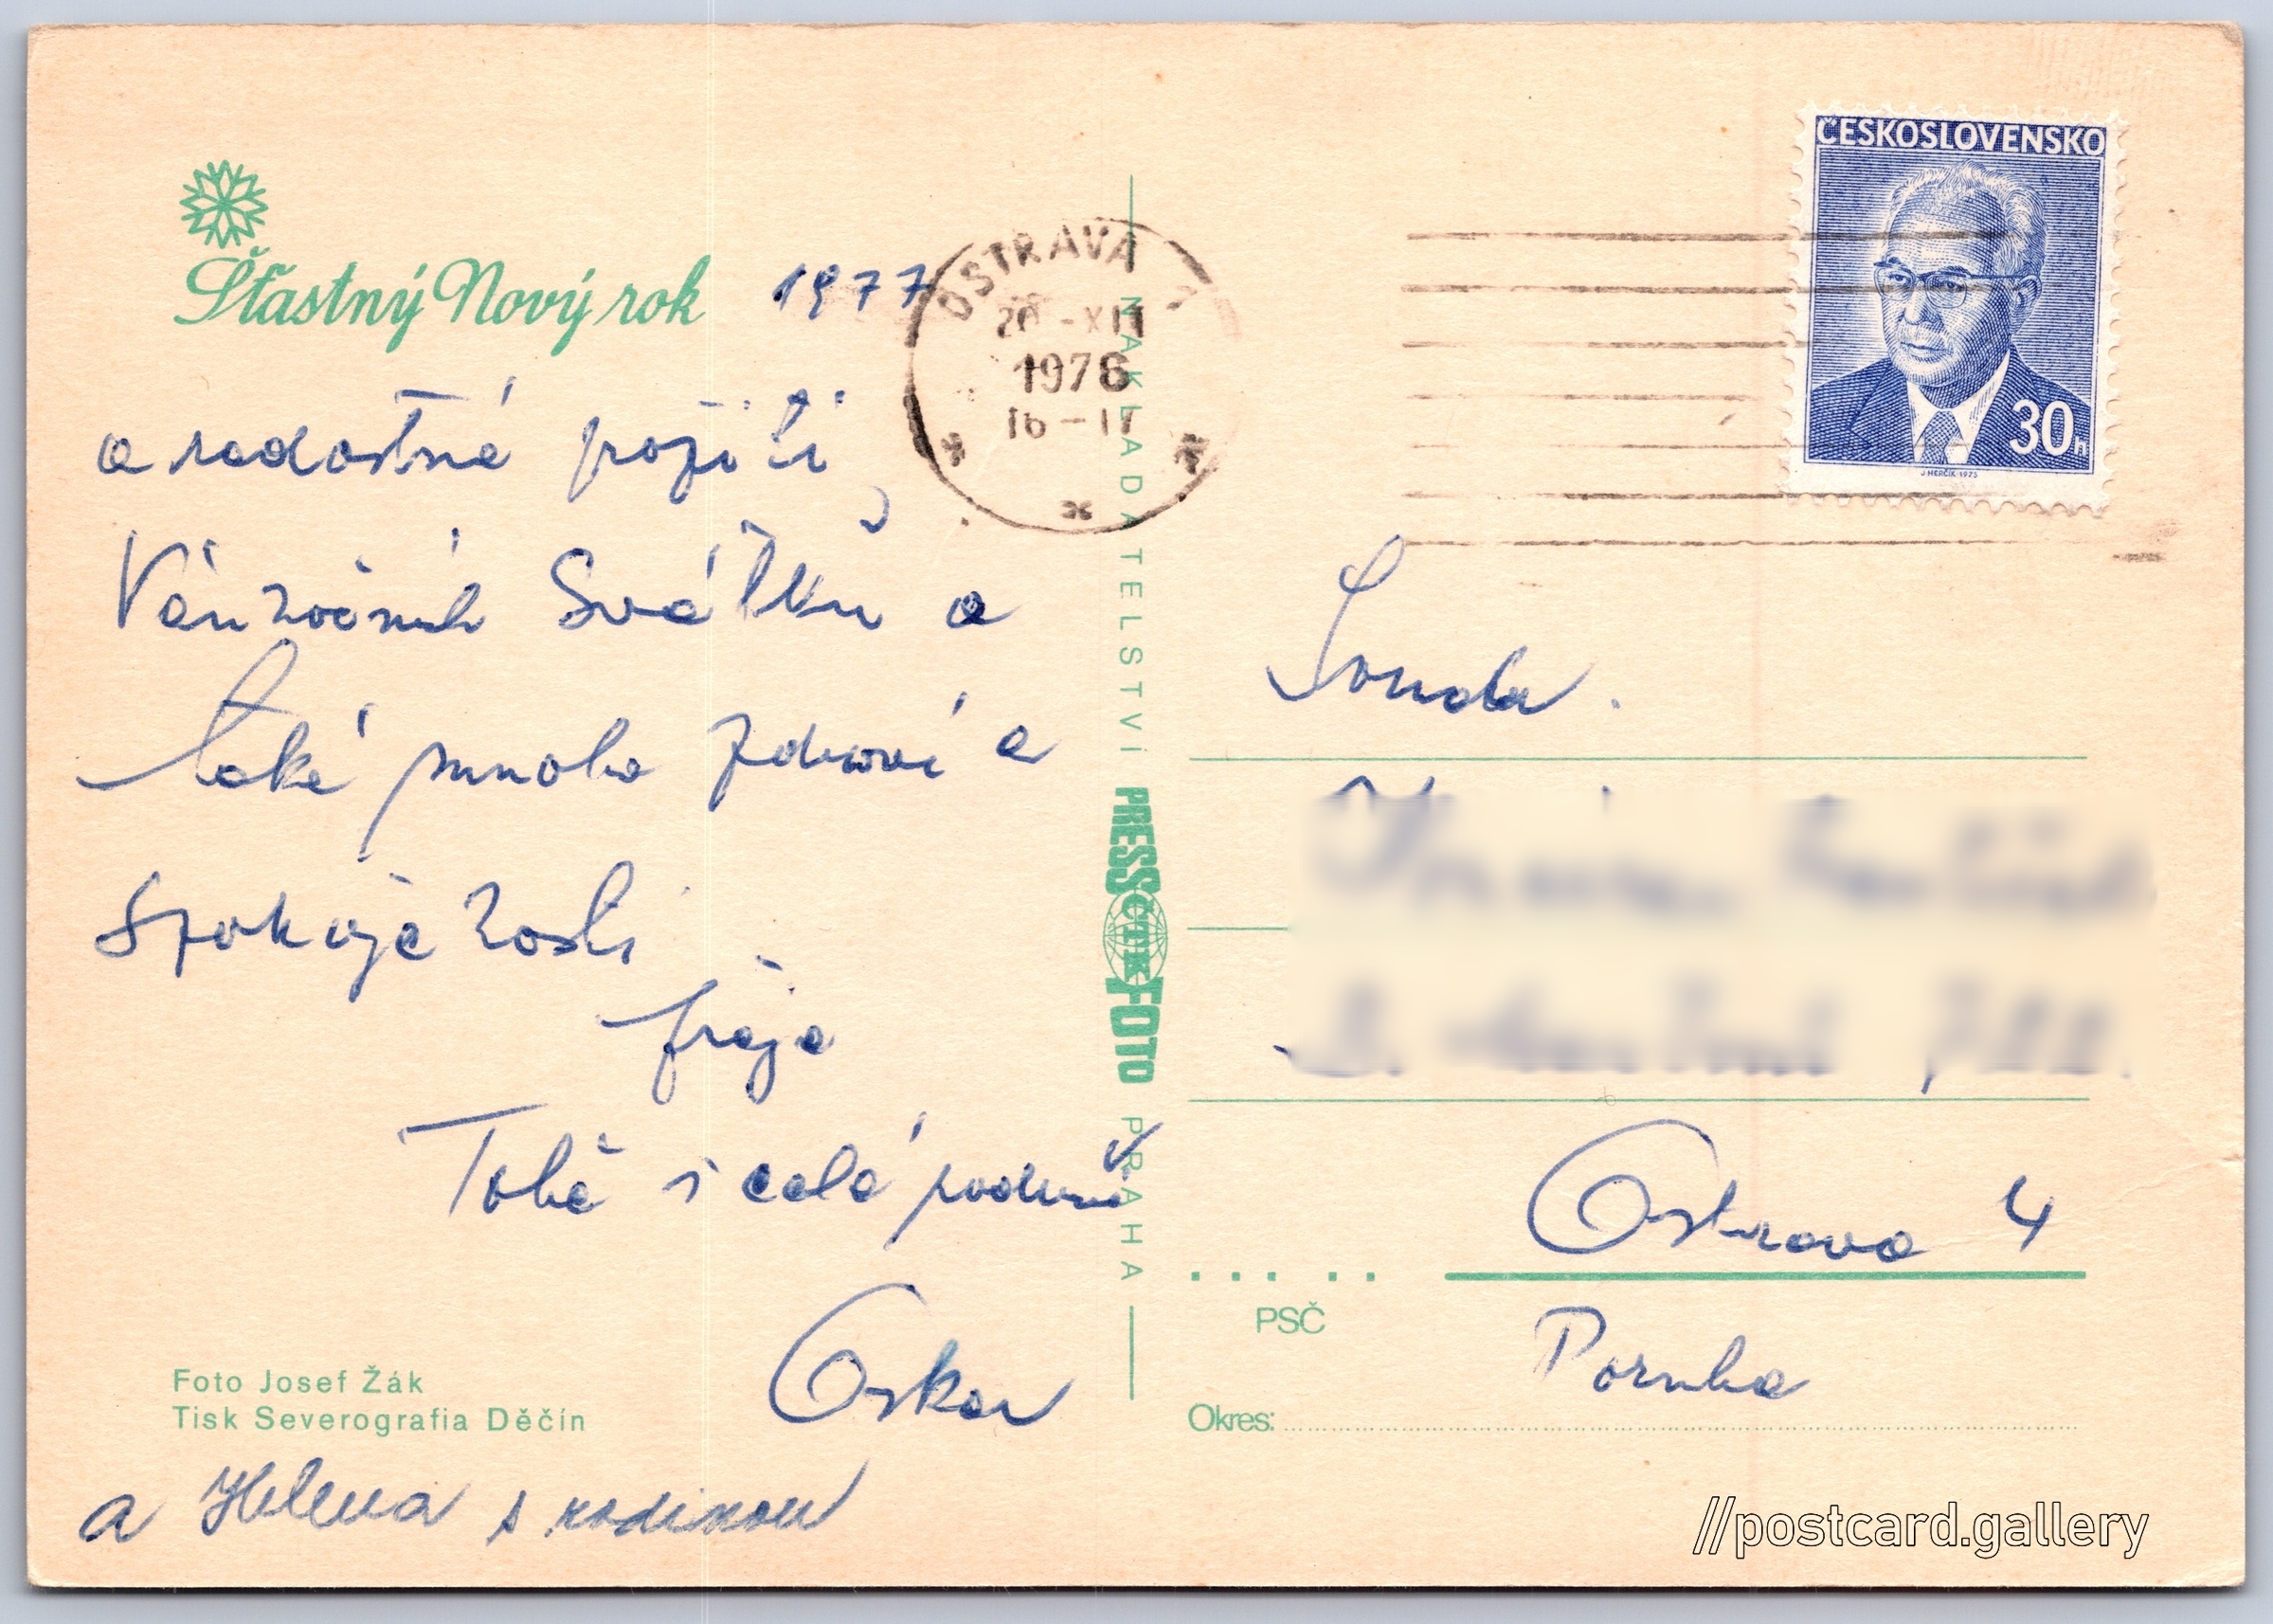 Šťastný Nový rok 1977
a radostné prožití
Vánočních Svátků a
také mnoho zdraví a
Spokojenosti
přeje
Tobě i celé rodině
Oskar
a Helena s rodinou
Foto Josef Žák
Tisk Severografia Děčín
OSTRAVA
-XII
1976
16-17
NAKLADATELSTVÍ
PRESSFOTO
ČTK
PRAHA
ČESKOSLOVENSKO
30h
J. HERČIK 1975
Ostrava 4
PSČ
Poruba
Okres:
//postcard.gallery